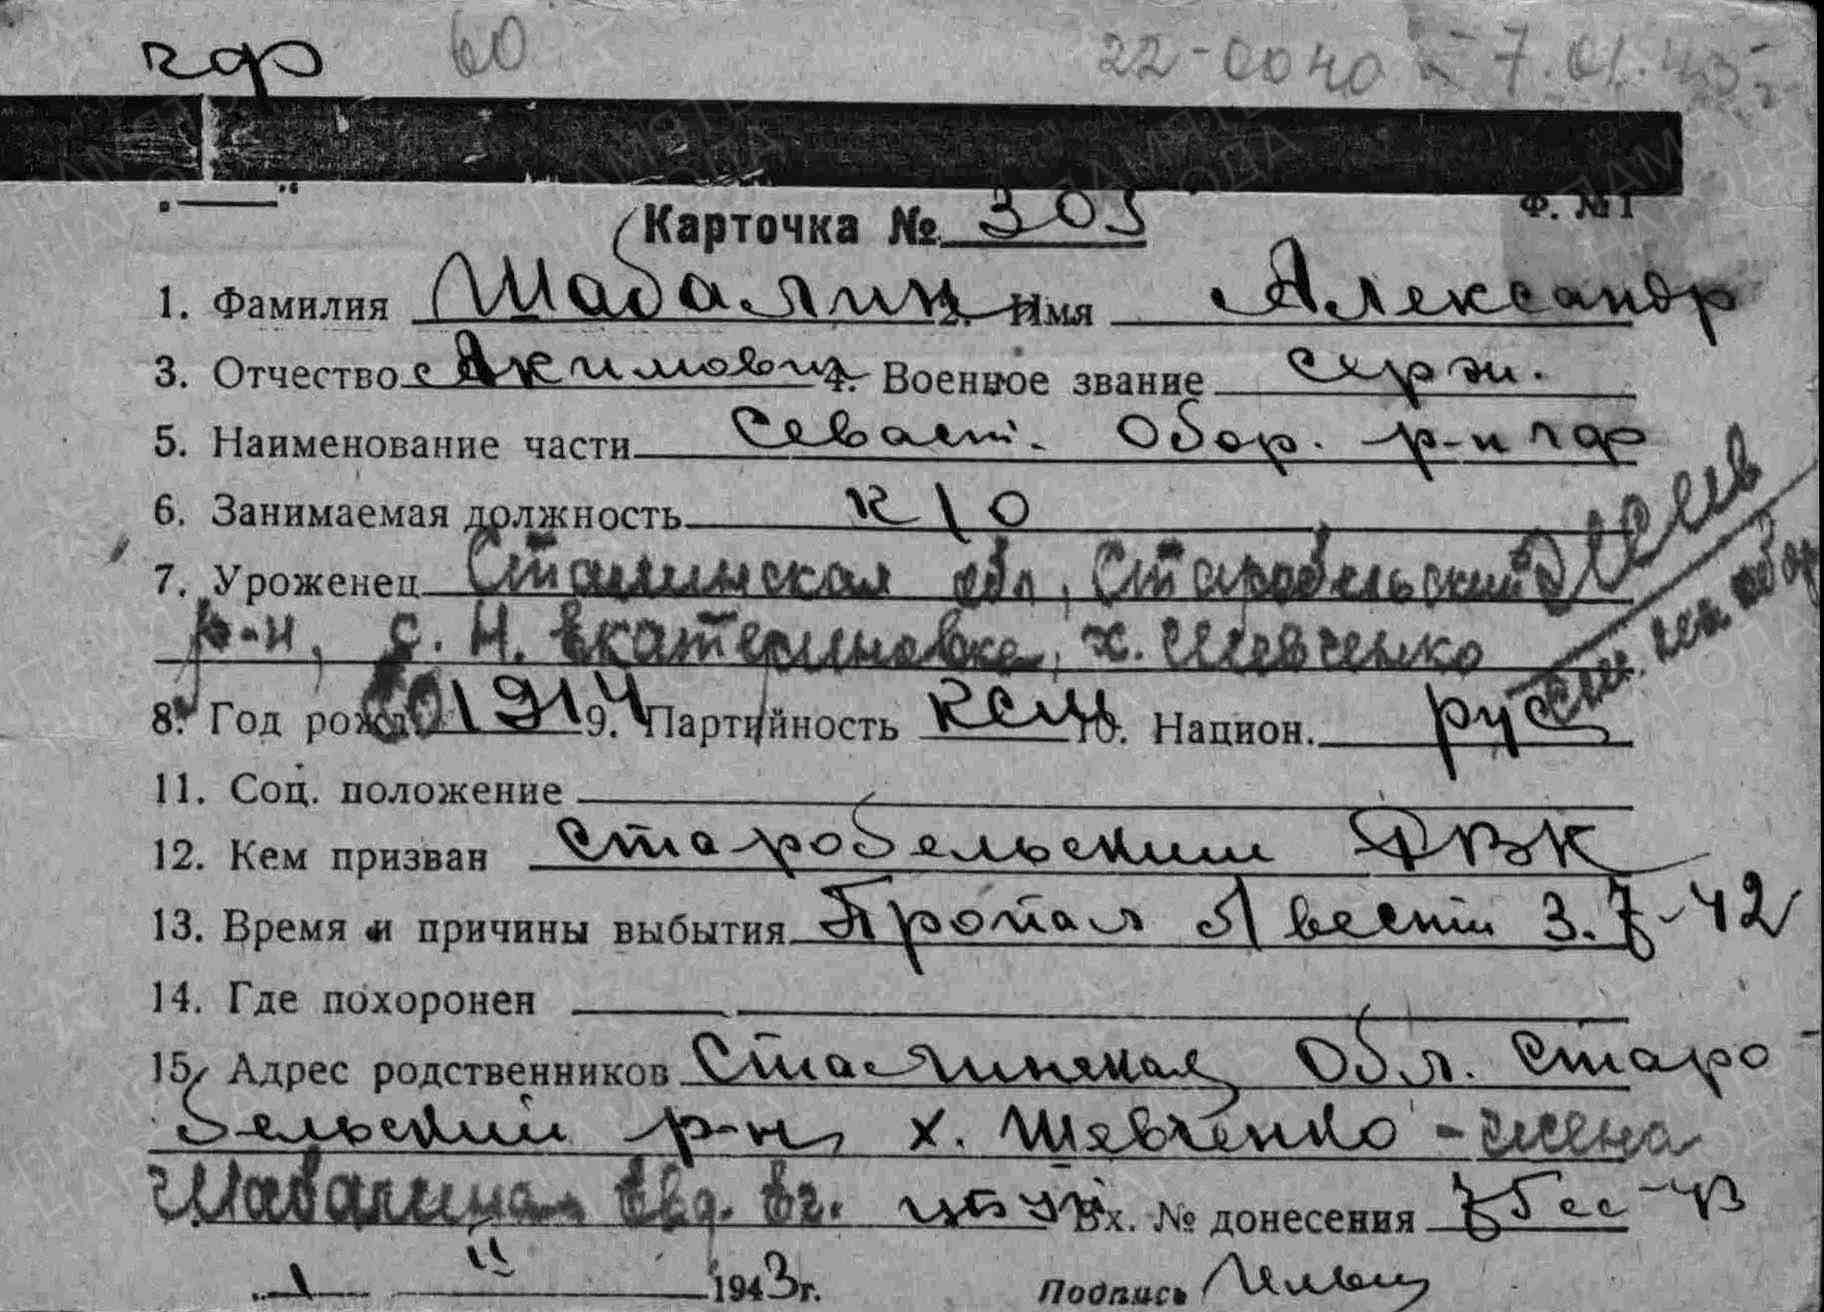 чф 60 22-0040 7.01.43г
Ф. №1
Карточка № 303
1. Фамилия Шабалин 2. Имя Александр
3. Отчество Акимович 4. Военное звание серж.
5. Наименование части Севаст. Обор. р-н чф
6. Занимаемая должность к/о
7. Уроженец Сталинская обл, Старобельский
р-н, с. Н. Екатериновка, х. Шевченко
8. Год рожд. 1914 9. Партийность ксм 10. Национ. рус
11. Соц. положение
12. Кем призван Старобельским РВК
13. Время и причины выбытия Пропал б/вести 3.7-42
14. Где похоронен
15. Адрес родственников Сталинская Обл. Старо
бельский р-н, х. Шевченко - жена
Шабалина Евд. Ег. Вх. № донесения 75сс-43
1 II 1943 г. Подпись